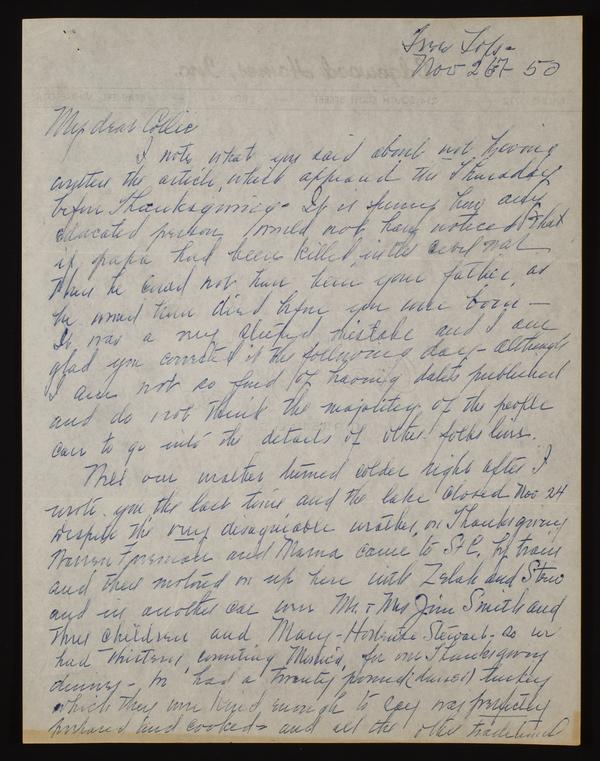 Nov 26 - 50
My dear Collie
I note what you said about not having
written the article, which appeared the Thursday
before Thanksgiving - It is funny how any
educated person would not have noticed that
if papa had been killed in the civil war
then he could not have been your father, as
he would have died before you were born -
It was a very stupid mistake and I am
glad you corrected it the following day - although
I am not so fond of having dates published
and do not think the majority of the people
care to go into the details of other folks lives.
Well our weather turned colder right after I
wrote you the last time and the lake closed Nov 24
Despite the very disagreeable weather, on Thanksgiving
Warren Foreman and Mama came to St C. by train
and then motored on up here with Zelah and Stew
and in another car were Mr. & Mrs Jim Smith and
three children and Mary - Stewart - so we
had thirteen, counting, for our Thanksgiving
dinner - We had a twenty pound (dressed) turkey
which they were kind enough to say was perfectly
prepared and cooked - and all the other traditional